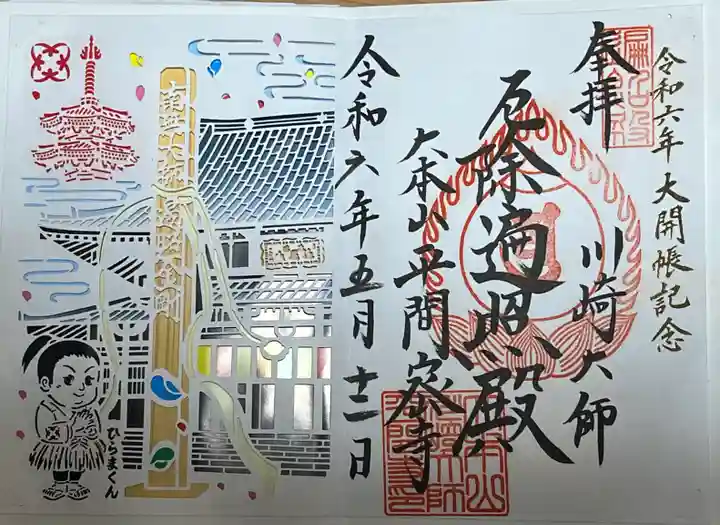 令和六年 大開帳記念
奉拝
川崎大師
厄除遍照殿
大本山平間寺
令和六年五月十二日
南無大師遍照金剛
ひらまくん